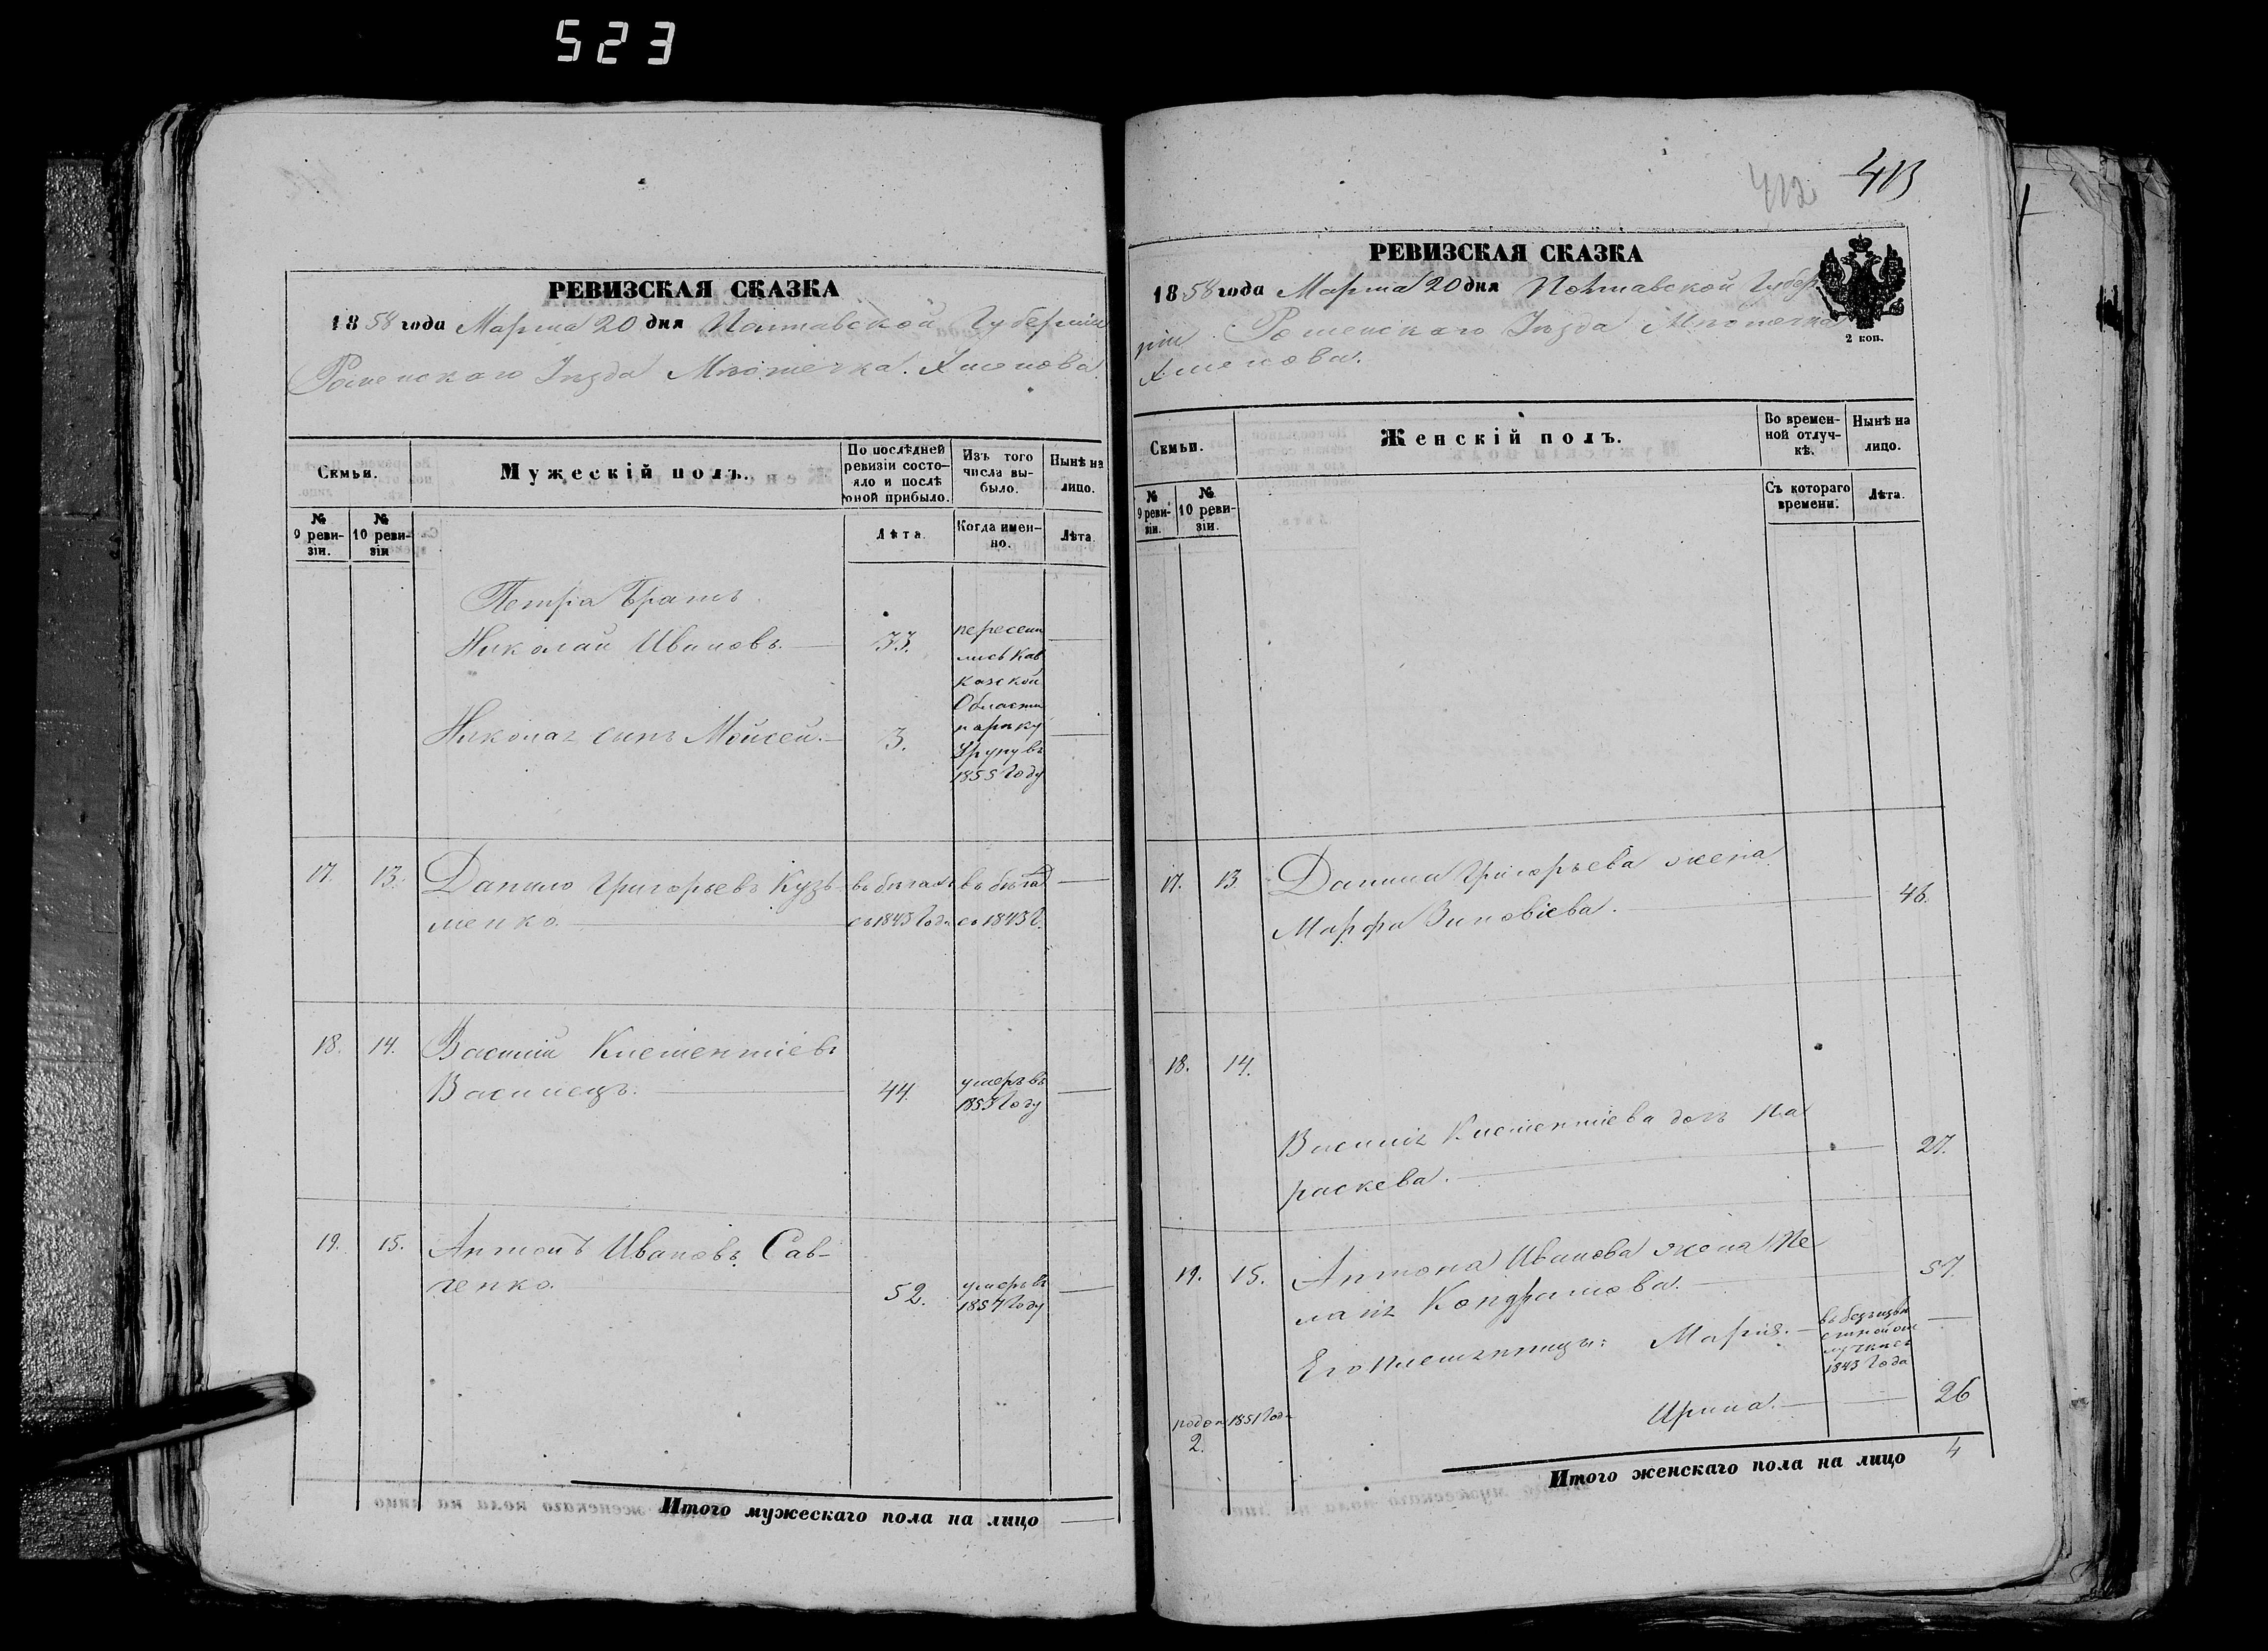 523
РЕВИЗСКАЯ СКАЗКА
1858 года Марта 20 дня Полтавской Губерніи
Роменскаго Уѣзда Мѣстечка Хмелова
Семьи.
Мужескій полъ.
По послѣдней ревизіи состояло и послѣ оной прибыло.
Изъ того числа выбыло.
Нынѣ на лицо.
№ 9 ревизіи.
№ 10 ревизіи
Лѣта.
Когда именно.
Лѣта.
Петра Братъ
Николай Ивановъ. 33.
пересели
лись Кав
казкой
Области
на рѣку
Урупу въ
1855 Году
Николая сынъ Мойсей. 3.
17. 13. Данило Григорьевъ Кузь
менко.
въ бѣгахъ
съ 1843 Года
въ бѣга
съ 1843 Г.
18. 14. Василій Клементіевъ
Василецъ. 44.
умеръ въ
1853 Году
19. 15. Антонъ Ивановъ Сав-
ченко. 52.
умеръ въ
1857 Году
Итого мужескаго пола на лицо
412 413
РЕВИЗСКАЯ СКАЗКА
1858 года Марта 20 дня Полтавской Губер
ніи Роменскаго Уѣзда Мѣстечка
Хмелова.
2 коп.
Семьи.
Женскій полъ.
Во временной отлучкѣ.
Нынѣ на лицо.
№ 9 ревизіи.
№ 10 ревизіи.
Съ котораго времени.
Лѣта.
17. 13. Данила Григорьева жена
Марфа Зиновіева. 46.
18. 14.
Василія Клементіева дочь Па
раскева. 27.
19. 15. Антона Иванова жена Ме
ланія Кондратова. 57.
Его племянницы: Марія.
въ безъизвѣ
стной от
лучкѣ съ
1843 Года
Ирина. 26
1851 Года
2.
Итого женскаго пола на лицо 4